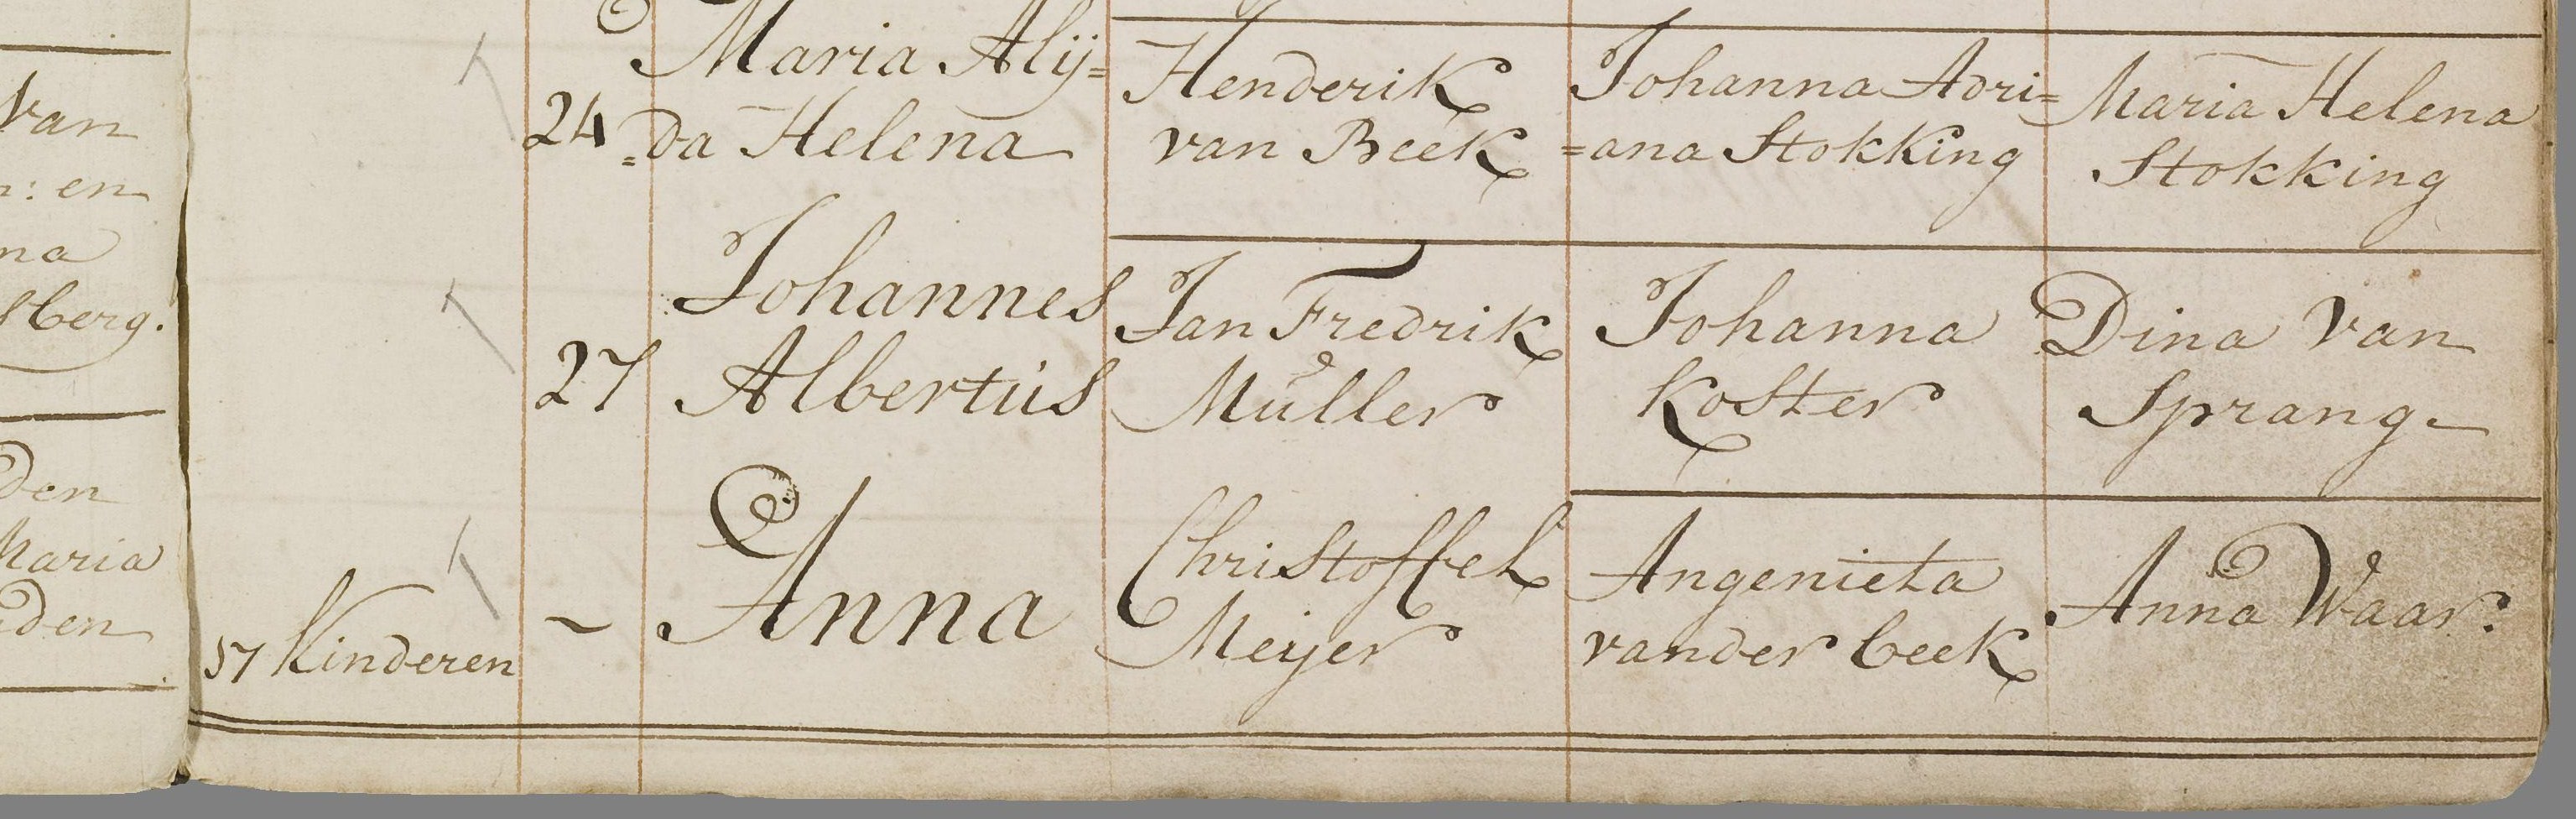 Van
n: en
na
sberg.
den
Maria
den
Maria Alij=
24 =da Helena
Henderik
van Beek
Johanna Adri=
=ana Stokking
Maria Helena
Stokking
Johannes
27 Albertus
Jan Fredrik
Muller
Johanna
Koster
Dina Van
Sprang
57 Kinderen
~ Anna
Christoffel
Meijer
Angenieta
vander beek
Anna Waar.